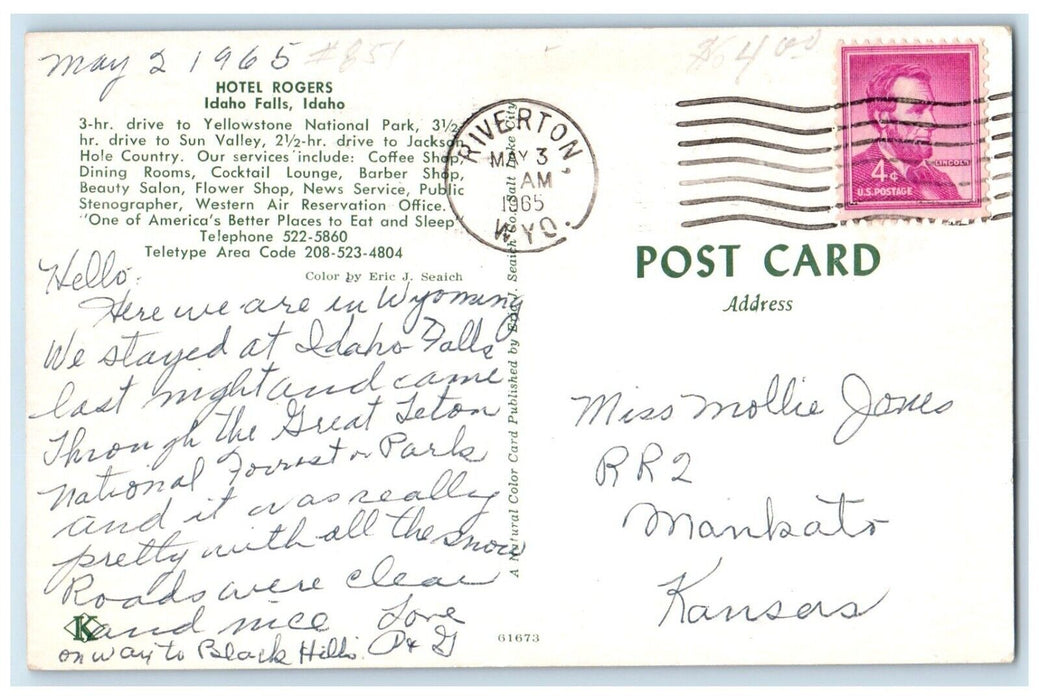 May 2 1965 #851
$4.00
HOTEL ROGERS
Idaho Falls, Idaho
3-hr. drive to Yellowstone National Park, 3½-
hr. drive to Sun Valley, 2½-hr. drive to Jackson
Hole Country. Our services include: Coffee Shop,
Dining Rooms, Cocktail Lounge, Barber Shop,
Beauty Salon, Flower Shop, News Service, Public
Stenographer, Western Air Reservation Office.
"One of America's Better Places to Eat and Sleep"
Telephone 522-5860
Teletype Area Code 208-523-4804
Color by Eric J. Seaich
Hello:
Here we are in Wyoming
We stayed at Idaho Falls
last night and came
Through the Great Teton
National Forrest & Park
and it was really
pretty with all the snow
Roads were clear
and nice Love
on way to Black Hills. P & G
K
A Natural Color Card Published by Eric J. Seaich Co., Salt Lake City
61673
RIVERTON,
MAY 3
AM
1965
WYO.
LINCOLN
4¢
U.S. POSTAGE
POST CARD
Address
Miss Mollie Jones
RR2
Mankato
Kansas